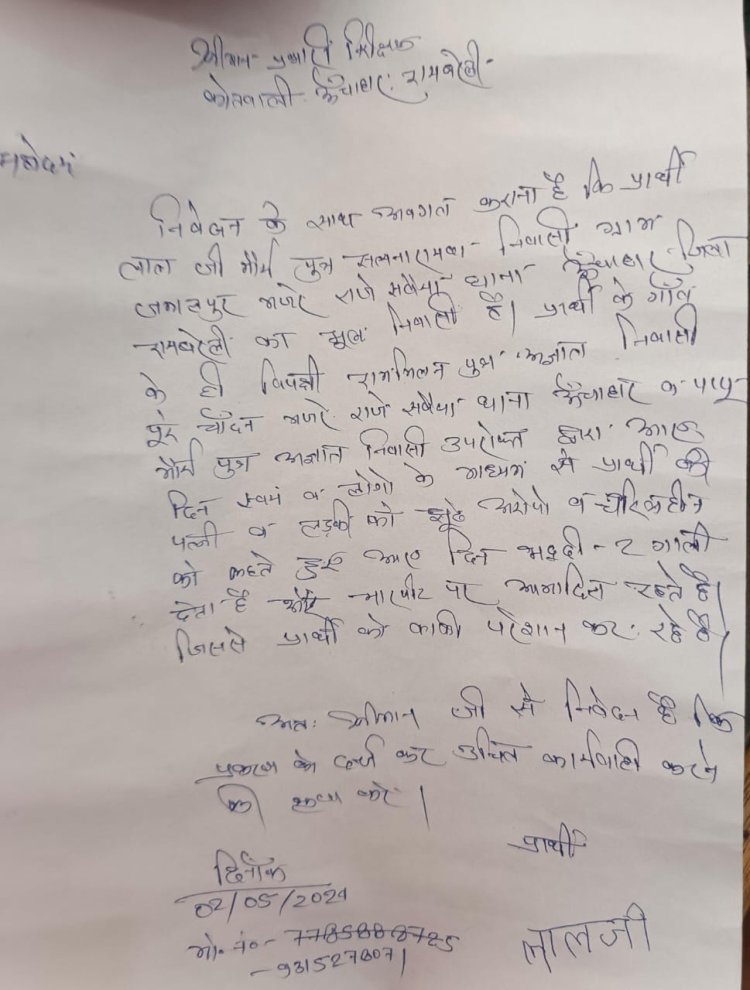 श्रीमान प्रभारी निरीक्षक
कोतवाली ऊँचाहार रायबरेली
महोदय
निवेदन के साथ अवगत कराना है कि प्रार्थी
लाल जी मौर्य पुत्र सत्यनारायण निवासी ग्राम
जमालपुर मजरे राजे सवैया थाना ऊँचाहार जिला
रायबरेली का मूल निवासी है। प्रार्थी के गाँव
के ही विपक्षी राममिलन पुत्र अज्ञात निवासी
पूरे चाँदन मजरे राजे सवैया थाना ऊँचाहार व पप्पू
मौर्य पुत्र अज्ञात निवासी उपरोक्त द्वारा आए
दिन स्वयं व लोगो के माध्यम से प्रार्थी की
पत्नी व लड़की को झूठे अरोपो व चरित्रहीन
को कहते हुए आए दिन भद्दी-2 गाली
देता है और मारपीट पर आमादित रहते है।
जिससे प्रार्थी को काफी परेशान कर रहे है।
अतः श्रीमान जी से निवेदन है कि
प्रकरण को दर्ज कर उचित कार्यवाही करने
की कृपा करे।
प्रार्थी
दिनाँक
02/05/2024
मो. नं०- 7785888725
- 9315278071
लालजी